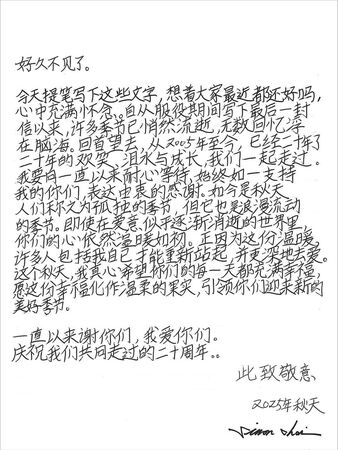 好久不见了。
今天提笔写下这些文字，想着大家最近都还好吗，
心中充满怀念。自从服役期间写下最后一封
信以来，许多季节已悄然流逝，无数回忆浮
在脑海。回首望去，从2005年至今，已经二十年了
二十年的欢笑、泪水与成长，我们一起走过。
我要向一直以来耐心等待，始终如一支持
我的你们，表达由衷的感谢。如今是秋天
人们称之为孤独的季节，但它也是浪漫流动
的季节。即使在爱意似乎逐渐消逝的世界里，
你们的心依然温暖如初。正因为这份温暖，
许多人包括我自己才能重新站起，并更深地去爱。
这个秋天，我真心希望你们的每一天都充满幸福，
愿这份幸福化作温柔的果实，引领你们迎来新的
美好季节。
一直以来谢谢你们，我爱你们。
庆祝我们共同走过的二十周年。。
此致敬意
2025年秋天